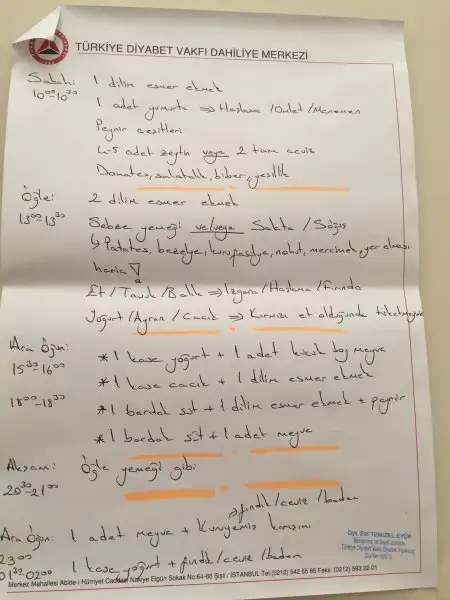 TÜRKİYE DİYABET VAKFI DAHİLİYE MERKEZİ
Sabah: 1 dilim esmer ekmek
10⁰⁰-10³⁰
1 adet yumurta ⇒ Haşlama / Omlet / Menemen
Peynir çeşitleri
4-5 adet zeytin veya 2 tam ceviz
Domates, salatalık, biber, yeşillik
Öğle: 2 dilim esmer ekmek
13⁰⁰-13³⁰
Sebze yemeği ve/veya Salata / Söğüş
↳ Patates, bezelye, kurufasulye, nohut, mercimek, yer elması
hariç
Et / Tavuk / Balık ⇒ Izgara / Haşlama / Fırında
Yoğurt / Ayran / Cacık ⇒ Kırmızı et olduğunda tüketmeyin
Ara Öğün: * 1 kase yoğurt + 1 adet küçük boy meyve
15³⁰-16⁰⁰
* 1 kase cacık + 1 dilim esmer ekmek
18⁰⁰-18³⁰
* 1 bardak süt + 1 dilim esmer ekmek + peynir
* 1 bardak süt + 1 adet meyve
Akşam: Öğle yemeği gibi
20³⁰-21⁰⁰
fındık / ceviz / badem
Ara Öğün: 1 adet meyve + Kuruyemiş karışımı
23⁰⁰
01³⁰-02⁰⁰ 1 kase yoğurt + fındık / ceviz / badem
Dyt. Elif TEMİZEL EYÜP
Beslenme ve Diyet Uzmanı
Merkez Mahallesi Abide-i Hürriyet Caddesi Nakiye Elgün Sokak No:64-66 Şişli / İSTANBUL Tel:(0212) 542 55 85 Faks: (0212) 583 22 01